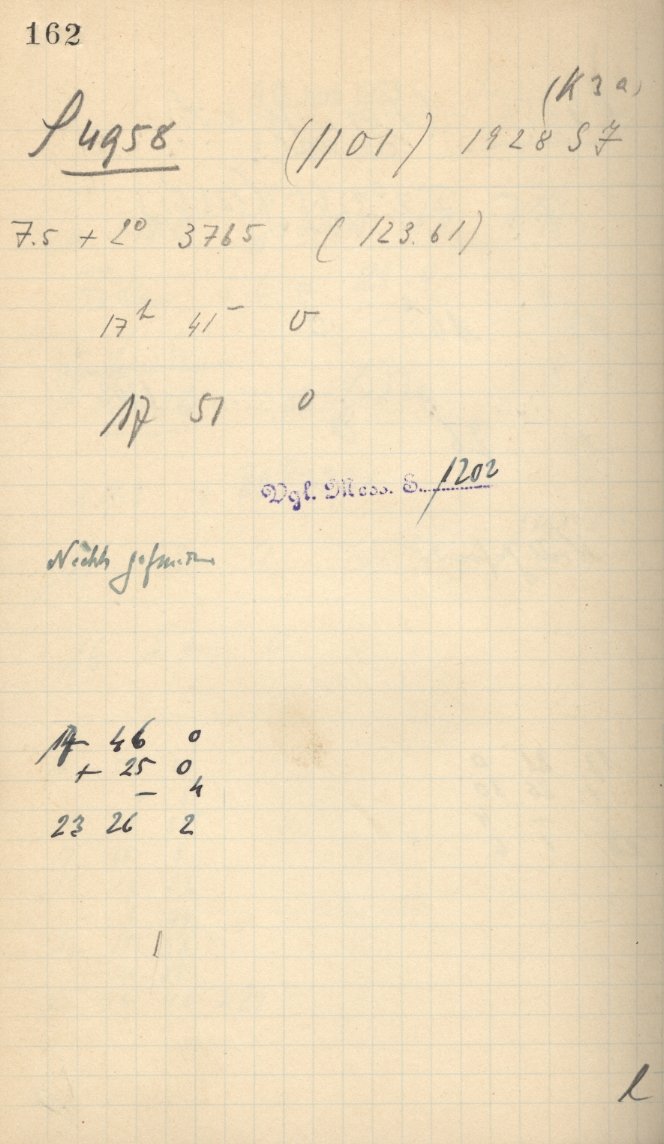 162
(K 3 a)
P 4958 (1101) 1928 SJ
7.5 + 2° 3765 (123.61)
17h 41m 0
17 51 0
Vgl. Mess. S. 1202
Nichts
17 46 0
+ 25 0
- 4
23 26 2
l